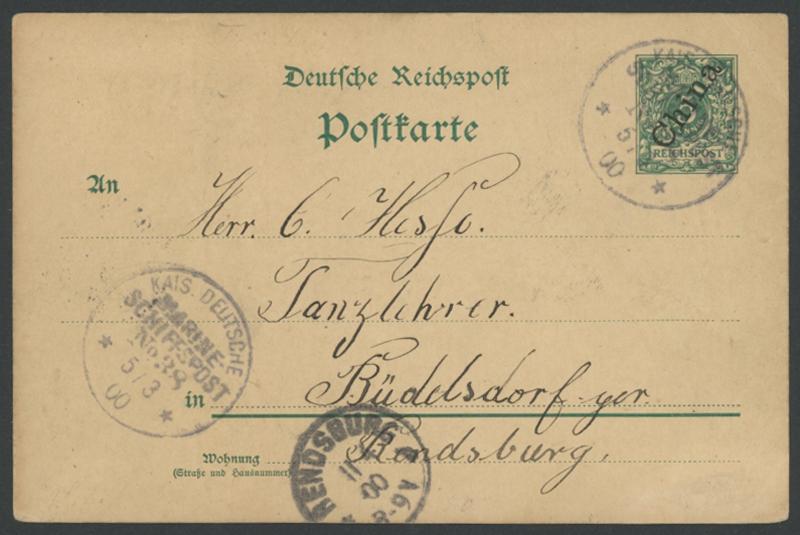 Deutsche Reichspost
Postkarte
China
REICHSPOST
An
Herr. C. Hesse.
Tanzlehrer.
in Büdelsdorf-per.
Rendsburg.
Wohnung
(Straße und Hausnummer)
KAIS. DEUTSCHE
MARINE-
SCHIFFSPOST
No 38
5/3
00
KAIS
5/
00
RENDSBURG
11
00